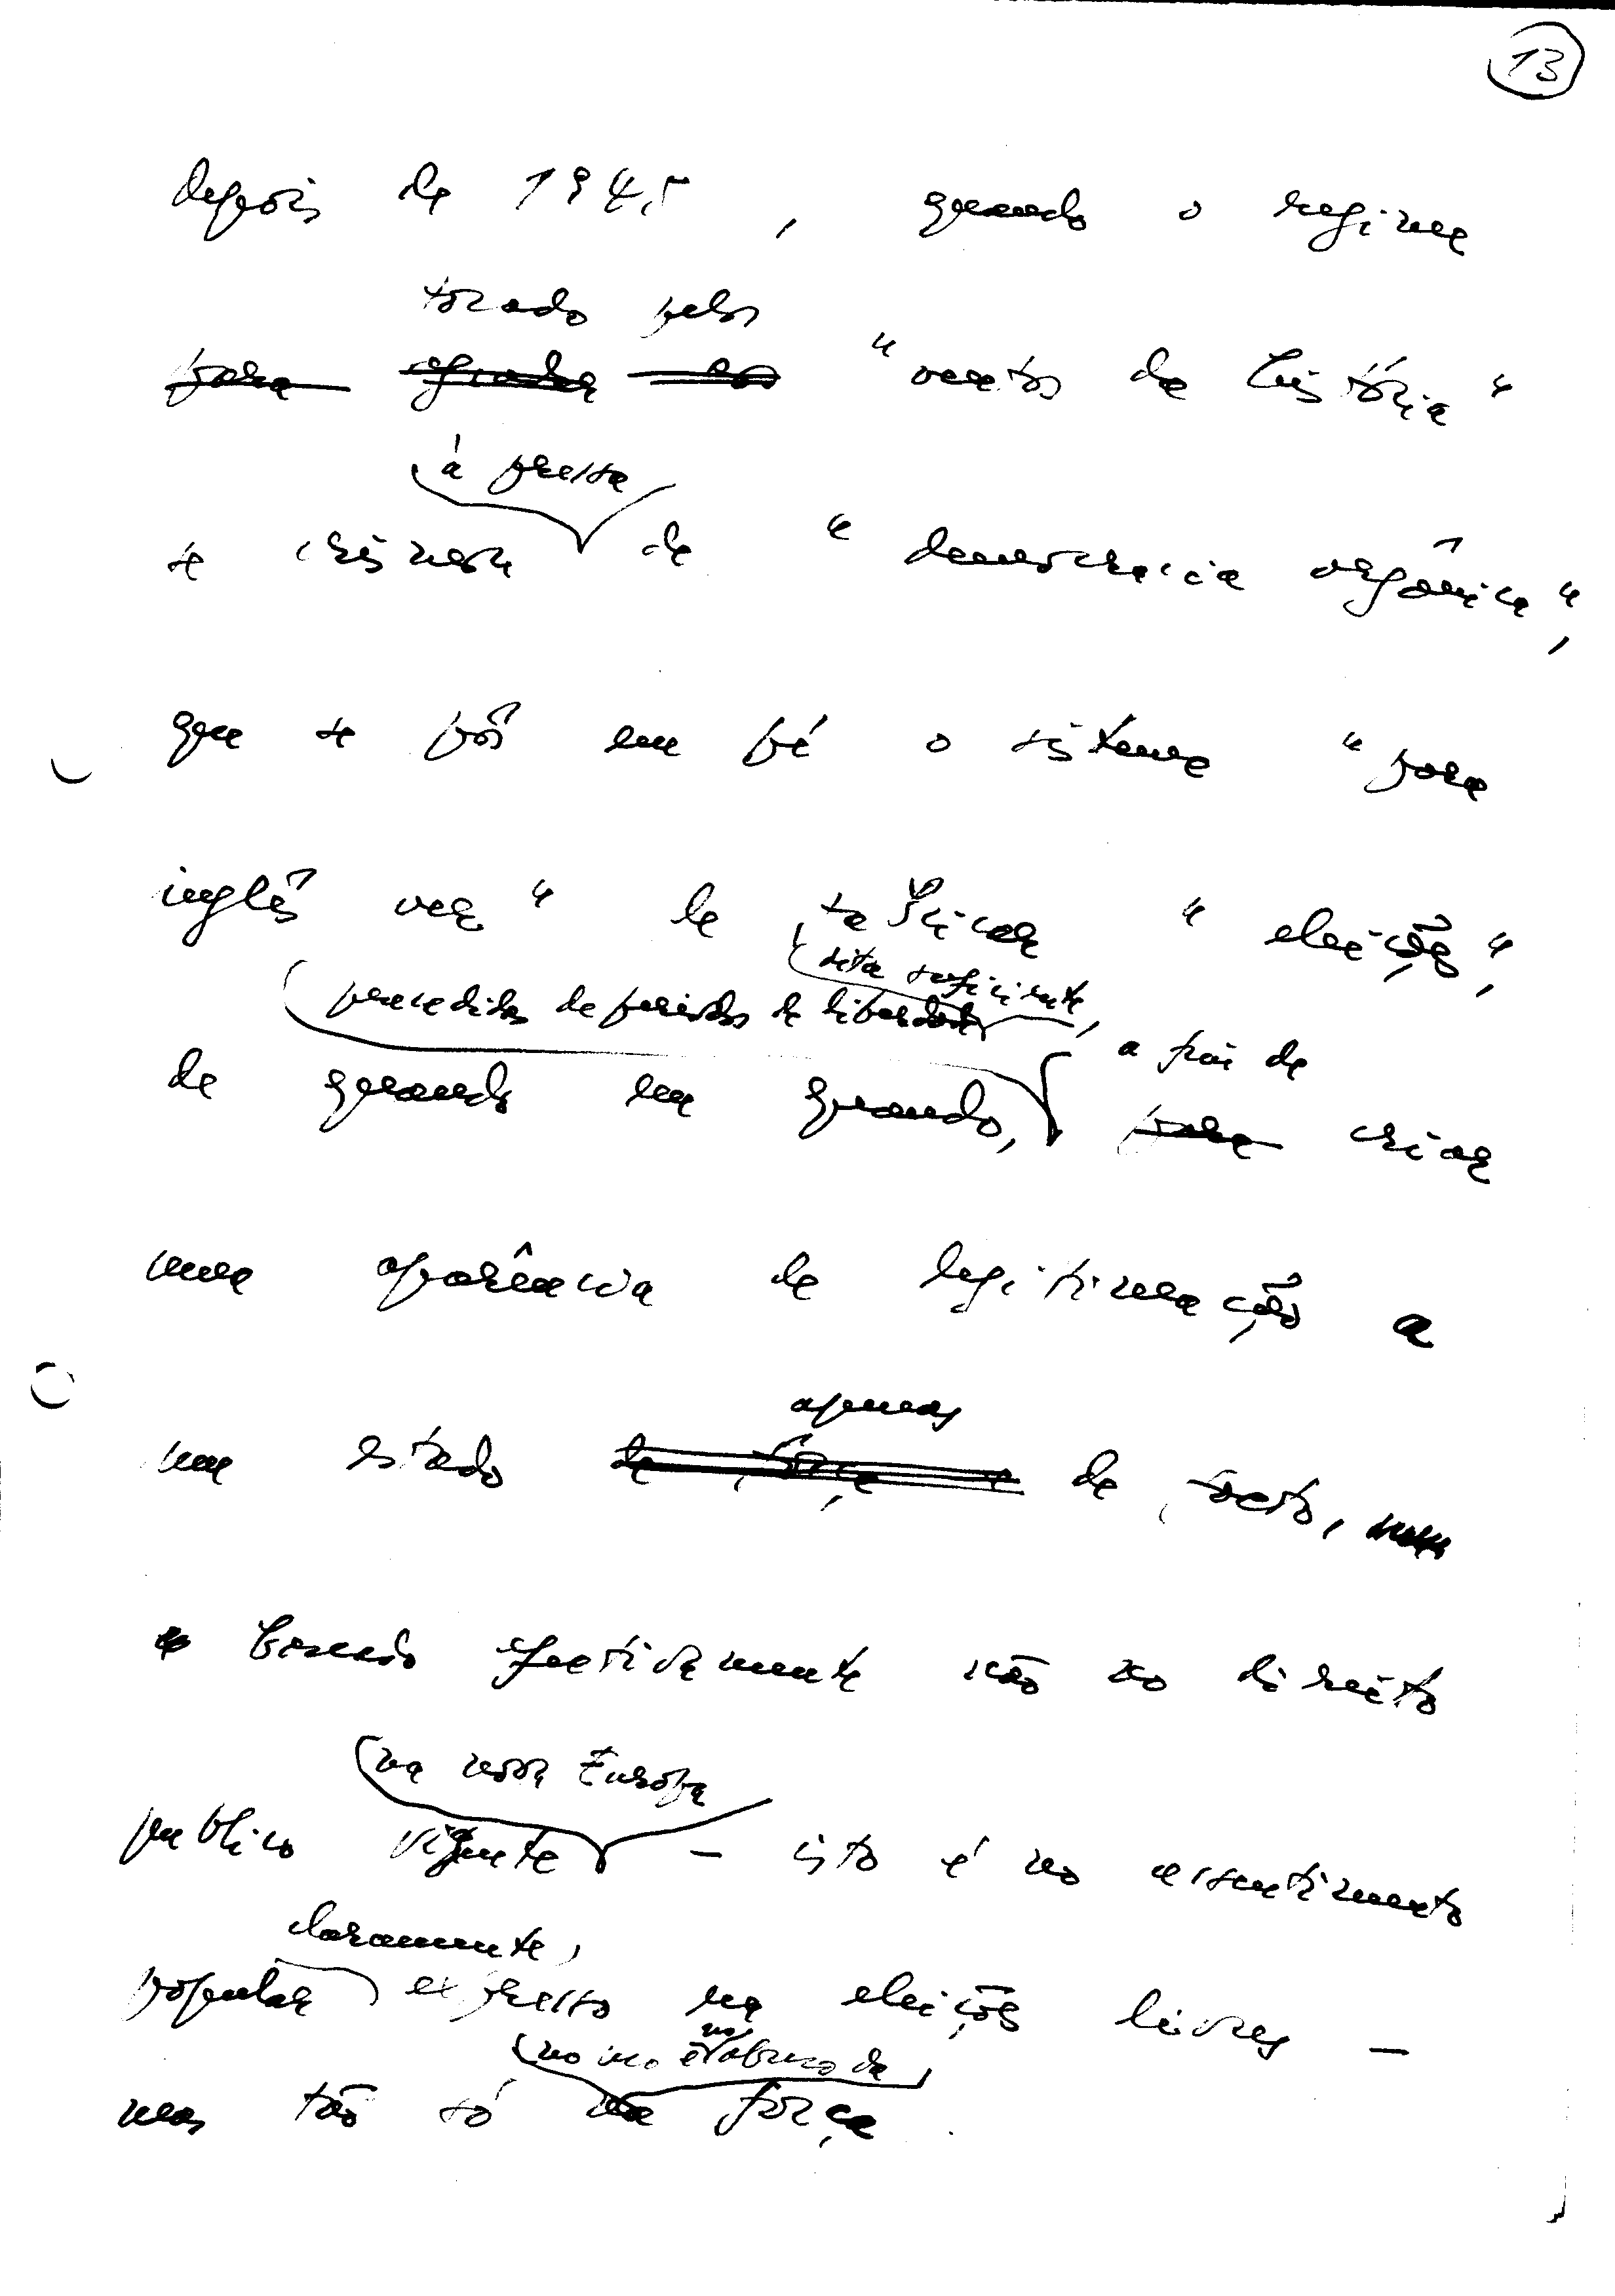 13
depois de 1945, quando o regime
tocado pelos
para agradar aos "ventos da história"
à pressa
se crismou de "democracia orgânica",
que se pôs em pé o sistema "para
inglês ver" de fabricar "eleições",
dita suficiente,
precedidas de períodos de liberdade
a fim de
de quando em quando, para criar
uma aparência de legitimação a
apenas
um estado de força e de facto,
baseado efectivamente não no direito
na nossa Europa
publico vigente – isto é no assentimento
claramente,
popular expresso em eleições livres –
no uso e no abuso da
mas tão só na força.